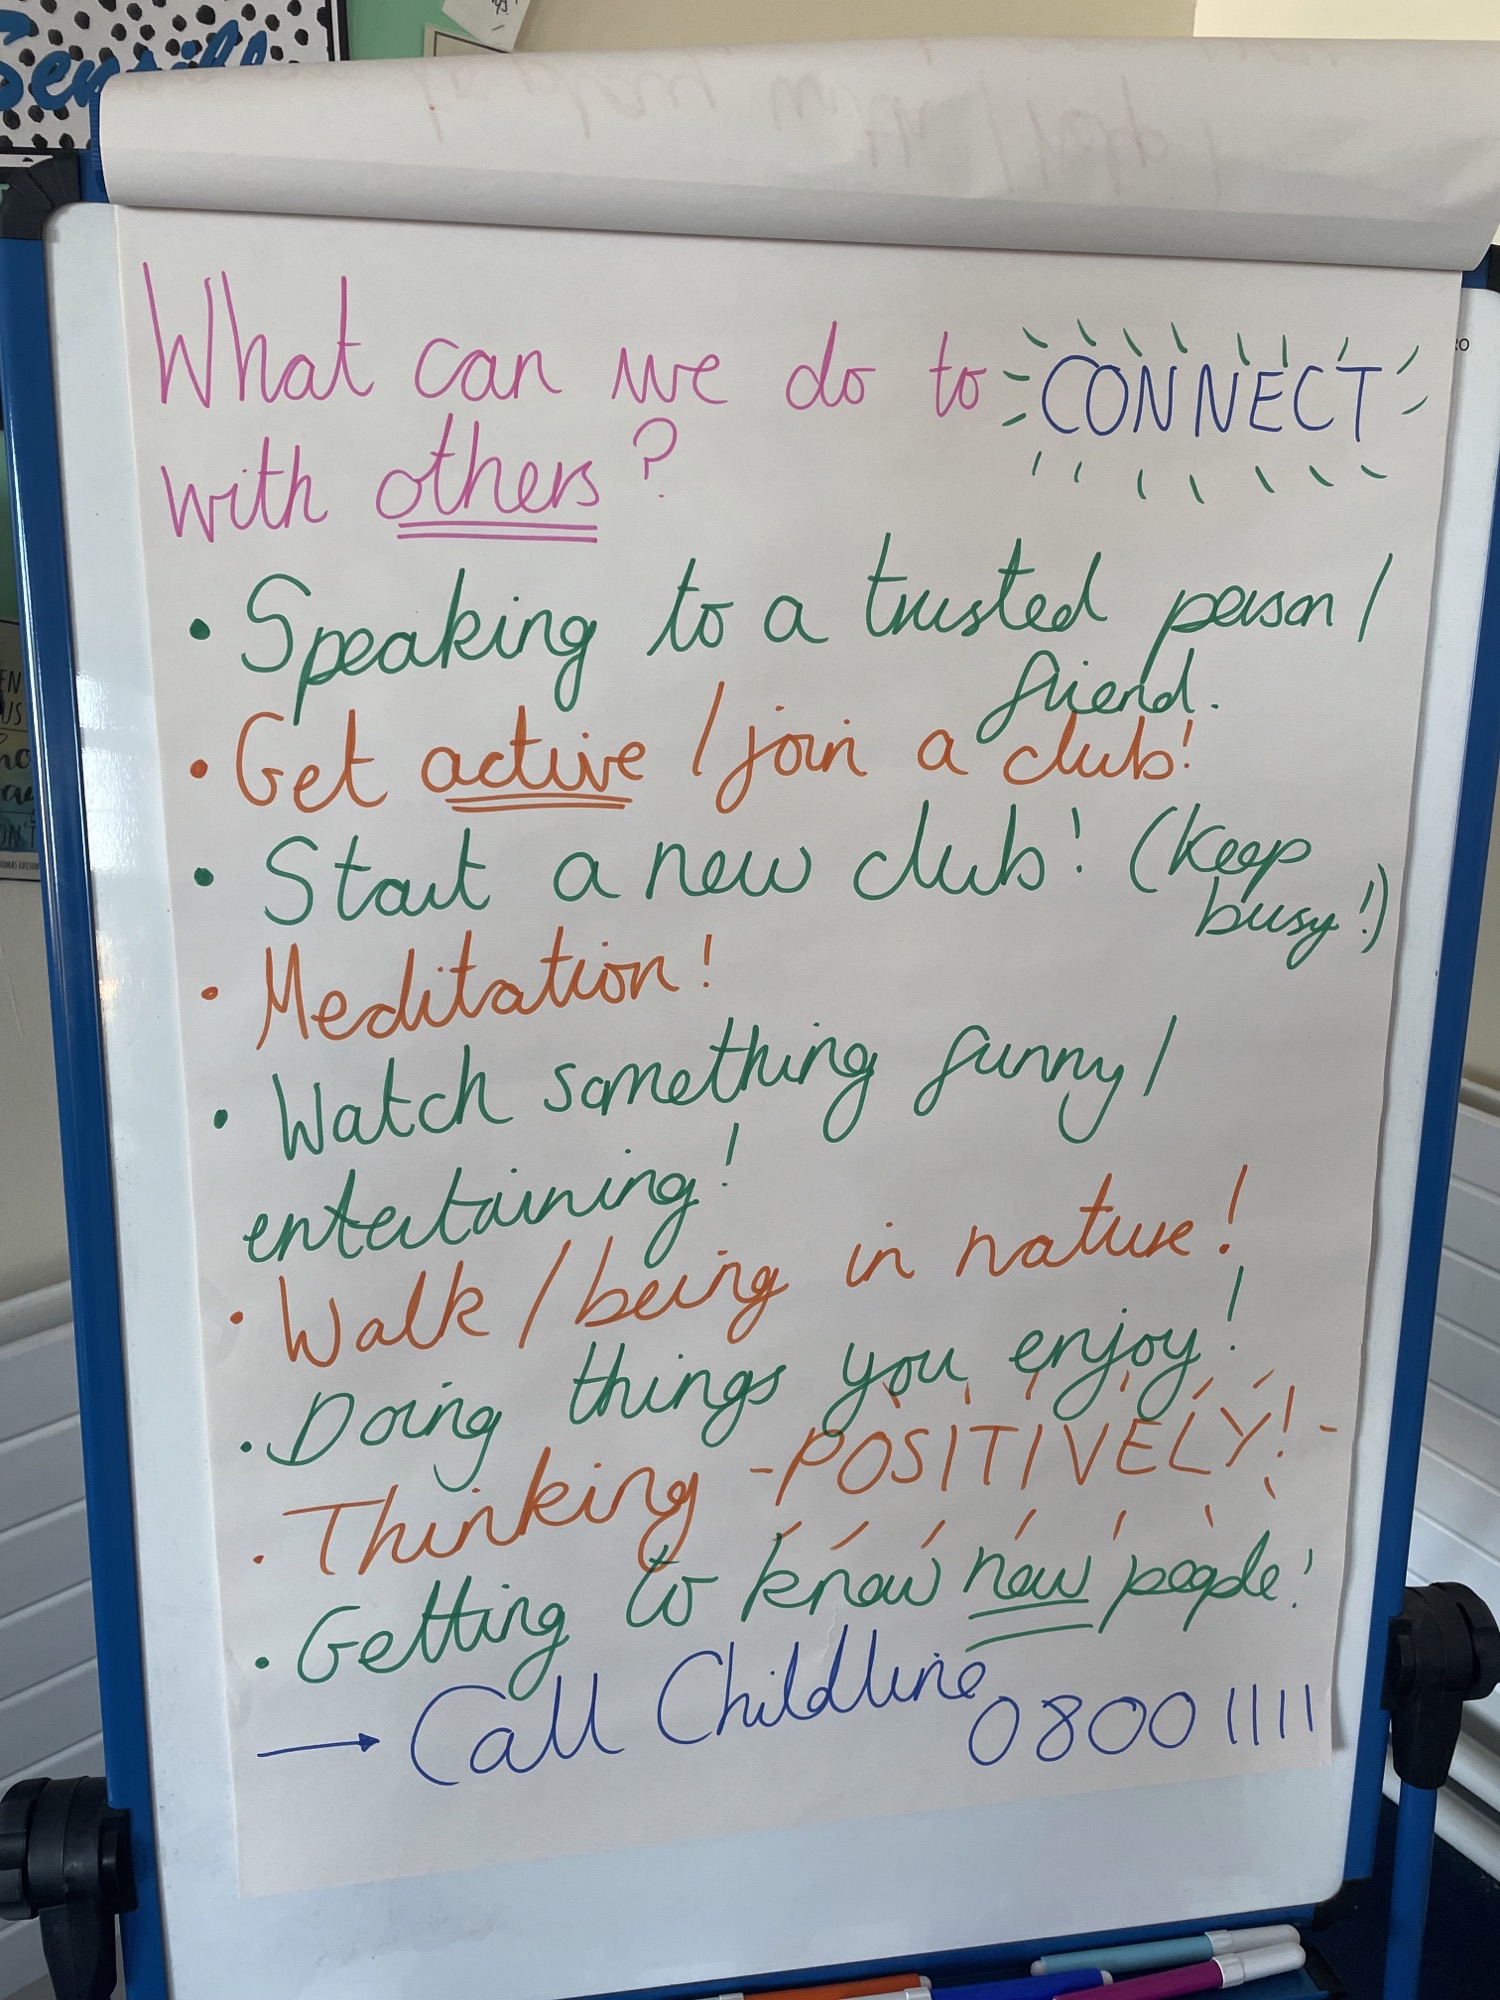 What can we do to CONNECT
with others?
• Speaking to a trusted person/
friend.
• Get active / join a club!
• Start a new club! (Keep
busy!)
• Meditation!
• Watch something funny/
entertaining!
• Walk / being in nature!
• Doing things you enjoy!
• Thinking - POSITIVELY! -
• Getting to know new people!
→ Call Childline 0800 1111